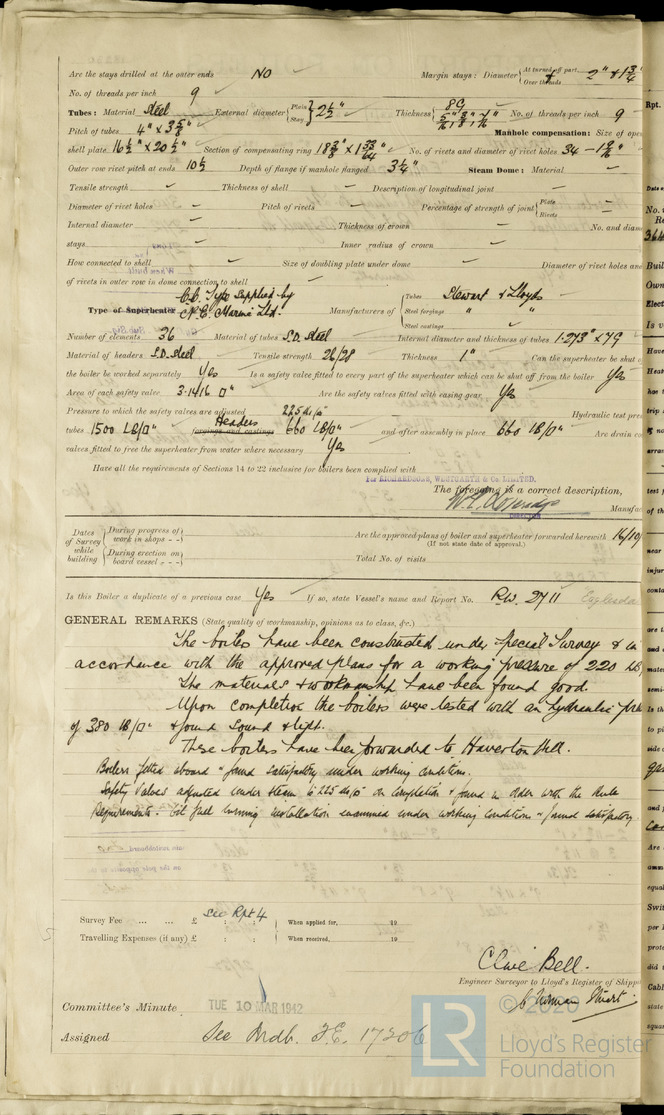 Are the stays drilled at the outer ends No Margin stays: Diameter { At turned off part 2" & 1 3/4
Over threads
No. of threads per inch 9
Tubes: Material Steel External diameter { Plain Stay } 2 1/2" Thickness { 8G 5/16, 3/8, 7/16 No. of threads per inch 9
Pitch of tubes 4" x 3 7/8" Manhole compensation: Size of ope
shell plate 16 1/2" x 20 1/2" Section of compensating ring No. of rivets and diameter of rivet holes 34 - 1 9/16
Outer row rivet pitch at ends 10 1/2 Depth of flange if manhole flanged 3 1/4" Steam Dome: Material
Tensile strength Thickness of shell Description of longitudinal joint
Diameter of rivet holes Pitch of rivets Percentage of strength of joint { Plate
Rivets
Internal diameter Thickness of crown No. and diam
stays Inner radius of crown
How connected to shell Size of doubling plate under dome Diameter of rivet holes and
of rivets in outer row in dome connection to shell
Type of Superheater Type Supplied by N.E. Marine Ltd. Manufacturers of { Tubes Stewart & Lloyds
Steel forgings " "
Steel castings
Number of elements 36 Material of tubes S.D. Steel Internal diameter and thickness of tubes 1.273" x 7G
Material of headers S.D. Steel Tensile strength 26/28 Thickness 1" Can the superheater be shut o
the boiler be worked separately Yes Is a safety valve fitted to every part of the superheater which can be shut off from the boiler Yes
Area of each safety valve 3.1416 □" Are the safety valves fitted with casing gear Yes
Pressure to which the safety valves are adjusted 225 lb/□" Hydraulic test pre
tubes 1500 LB/□" forgings and castings Headers 660 LB/□" and after assembly in place 660 LB/□" Are drain co
valves fitted to free the superheater from water where necessary Yes
Have all the requirements of Sections 14 to 22 inclusive for boilers been complied with
For RICHARDSONS, WESTGARTH & Co LIMITED.
The foregoing is a correct description,
DIRECTOR Manufac
Dates of Survey while building { During progress of work in shops - - Are the approved plans of boiler and superheater forwarded herewith 16/10
(If not state date of approval.)
During erection on board vessel - - - Total No. of visits
Is this Boiler a duplicate of a previous case Yes If so, state Vessel's name and Report No. R.W. 2711
GENERAL REMARKS (State quality of workmanship, opinions as to class, &c.)
The boilers have been constructed under Special Survey & in
accordance with the approved plans for a working pressure of 220 lb,
The materials & workmanship have been found good.
Upon completion the boilers were tested with an hydraulic pres
of 380 lb/□" & found sound & tight.
These boilers have been forwarded to Haverton Hill.
Boilers fitted aboard & found satisfactory under working conditions.
Safety Valves adjusted under steam to 225 lb/□" on Completion & found in order with the Rule
Requirements. Oil fuel burning installation examined under working conditions & found satisfactory
Survey Fee ... ... £ See Rpt 4 When applied for, 19
Travelling Expenses (if any) £ : : When received, 19
Clive Bell.
Engineer Surveyor to Lloyd's Register of Shipp
Committee's Minute TUE 10 MAR 1942
Assigned See Mdb. F.E. 17206
LR © 2020
Lloyd's Register
Foundation